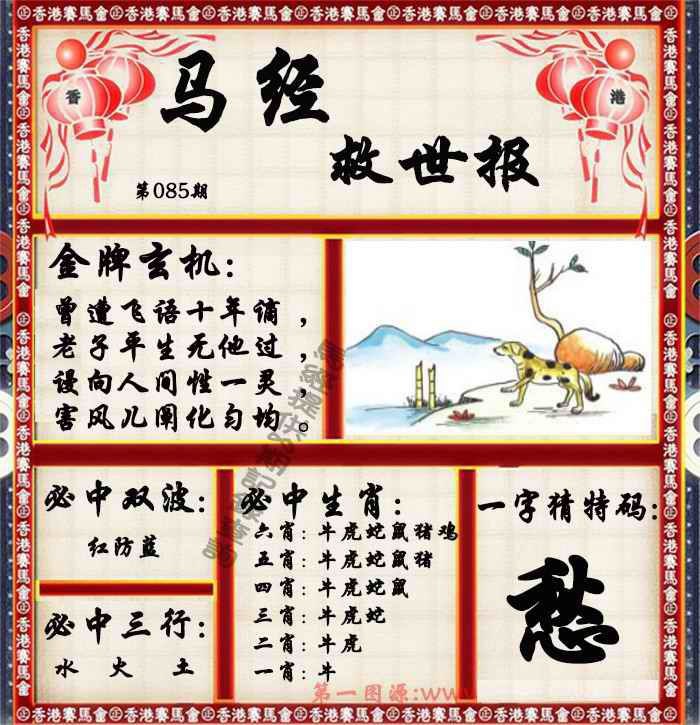 香港賽馬會㊣香港賽馬會㊣香港賽馬會㊣香港賽馬會㊣香港賽馬會㊣香港賽馬會
香
港
马经
救世报
第085期
金牌玄机：
曾遭飞语十年谪，
老子平生无他过，
谩向人间性一灵，
害风儿阐化匀均。
必中双波：
红防蓝
必中三行：
水 火 土
必中生肖：
六肖：牛虎蛇鼠猪鸡
五肖：牛虎蛇鼠猪
四肖：牛虎蛇鼠
三肖：牛虎蛇
二肖：牛虎
一肖：牛
一字猜特码：
愁
第一图源:www